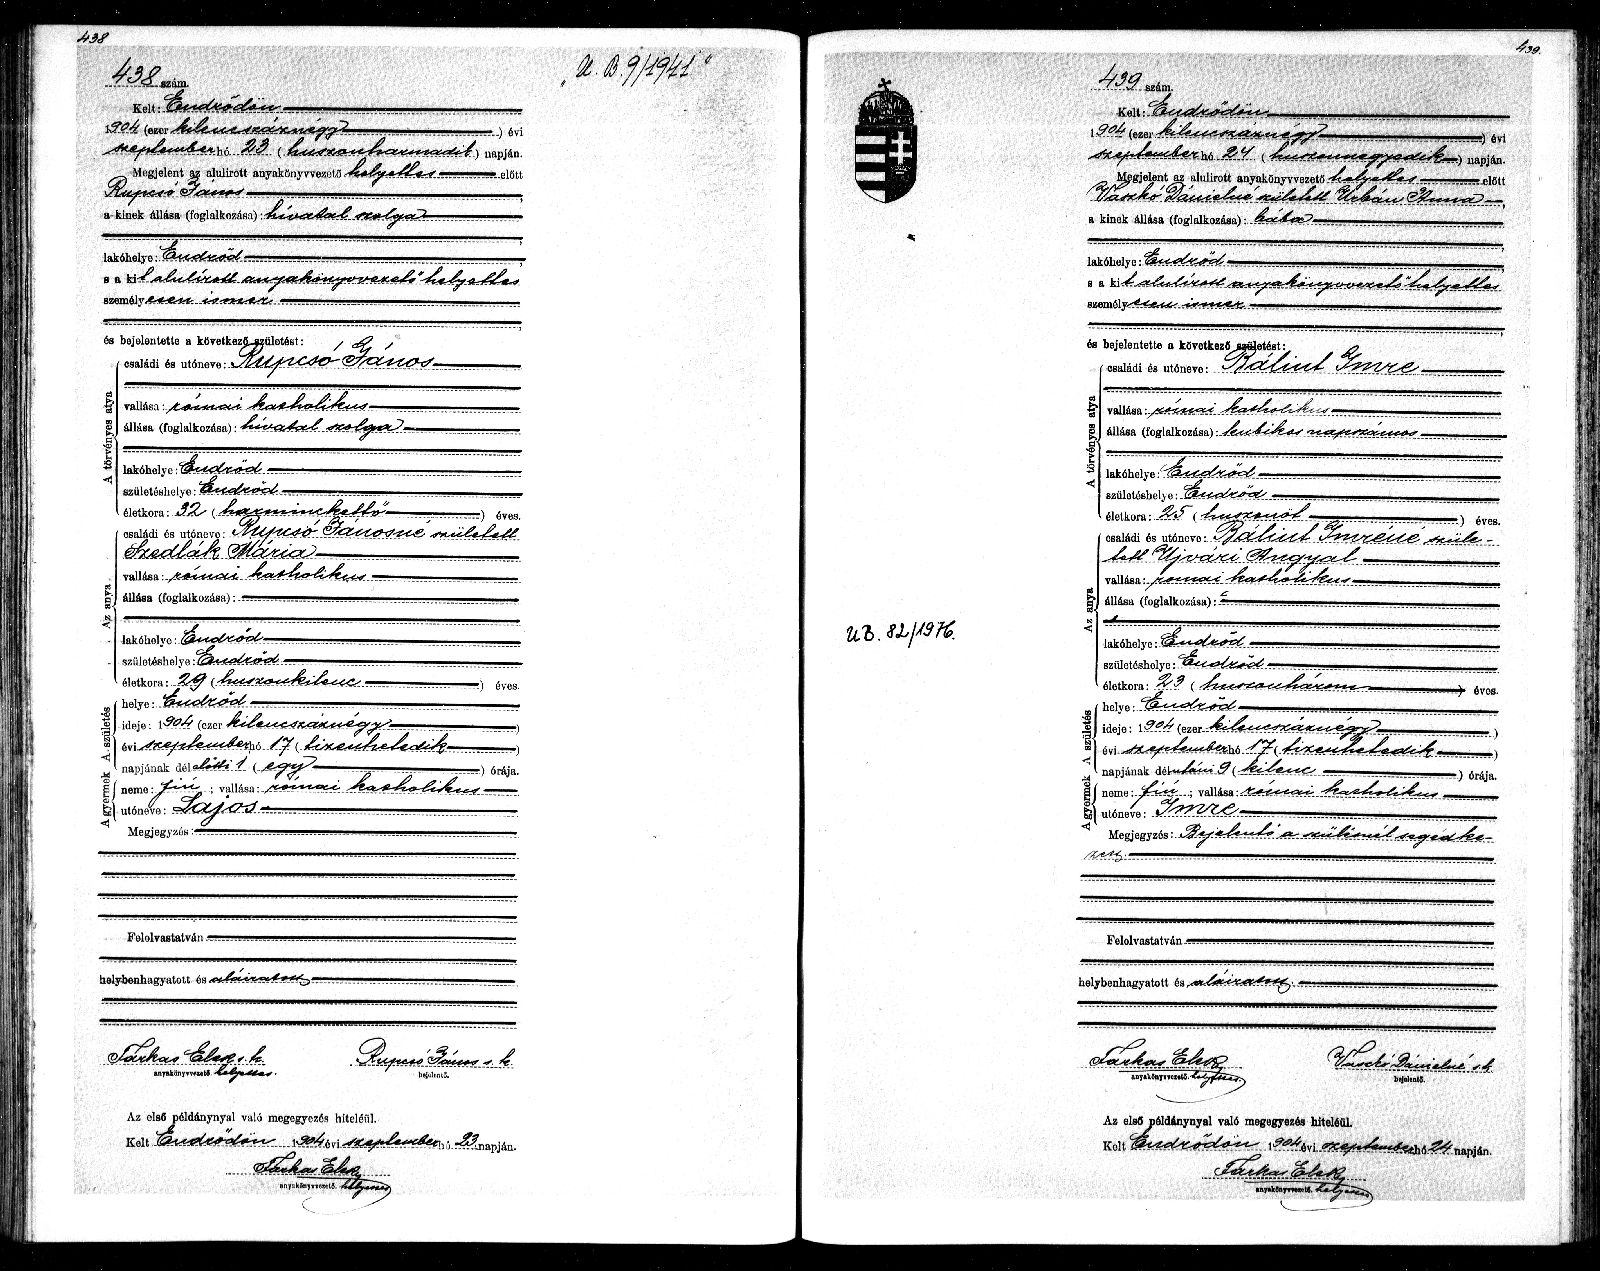 438
438 szám.
„U. B. 9/1941"
Kelt: Endrődön
1904 (ezer kilencszáznégy) évi
szeptember hó 23 (huszonharmadik) napján.
Megjelent az alulirott anyakönyvvezető helyettes előtt
Rupcsó János
a kinek állása (foglalkozása): hivatal szolga
lakóhelye: Endrőd
s a kit alulirott anyakönyvvezető helyettes
személyesen ismer
és bejelentette a következő születést:
A törvényes atya
családi és utóneve: Rupcsó János
vallása: római katholikus
állása (foglalkozása): hivatal szolga
lakóhelye: Endrőd
születéshelye: Endrőd
életkora: 32 (harminckettő) éves.
Az anya
családi és utóneve: Rupcsó Jánosné született
Szedlák Mária
vallása: római katholikus
állása (foglalkozása):
lakóhelye: Endrőd
születéshelye: Endrőd
életkora: 29 (huszonkilenc) éves.
A születés
helye: Endrőd
ideje: 1904 (ezer kilencszáznégy)
évi szeptember hó 17 (tizenhetedik)
napjának délelőtti 1 (egy) órája.
A gyermek
neme: fiú; vallása: római katholikus
utóneve: Lajos
Megjegyzés:
Felolvastatván
helybenhagyatott és aláiratott
Farkas Elek s. k. Rupcsó János s. k.
anyakönyvvezető helyettes. bejelentő.
Az első példánynyal való megegyezés hiteléül.
Kelt Endrődön 1904 évi szeptember hó 23 napján.
Farkas Elek
anyakönyvvezető helyettes
439
439 szám.
Kelt: Endrődön
1904 (ezer kilencszáznégy) évi
szeptember hó 24 (huszonnegyedik) napján.
Megjelent az alulirott anyakönyvvezető helyettes előtt
Vaskó Dánielné született Urbán Anna
a kinek állása (foglalkozása): bába
lakóhelye: Endrőd
s a kit alulirott anyakönyvvezető helyettes
személyesen ismer
és bejelentette a következő születést:
A törvényes atya
családi és utóneve: Bálint Imre
vallása: római katholikus
állása (foglalkozása): kubikos napszámos
lakóhelye: Endrőd
születéshelye: Endrőd
életkora: 25 (huszonöt) éves.
Az anya
családi és utóneve: Bálint Imréné szüle-
tett Ujvári Angyal
vallása: római katholikus
állása (foglalkozása):
UB. 82/1976.
lakóhelye: Endrőd
születéshelye: Endrőd
életkora: 23 (huszonhárom) éves.
A születés
helye: Endrőd
ideje: 1904 (ezer kilencszáznégy)
évi szeptember hó 17 (tizenhetedik)
napjának délutáni 9 (kilenc) órája.
A gyermek
neme: fiú; vallása: római katholikus
utóneve: Imre
Megjegyzés: Bejelentő a szülésnél segédke-
zett.
Felolvastatván
helybenhagyatott és aláiratott.
Farkas Elek Vaskó Dánielné s. k.
anyakönyvvezető helyettes bejelentő.
Az első példánynyal való megegyezés hiteléül.
Kelt Endrődön 1904 évi szeptember hó 24 napján.
Farkas Elek
anyakönyvvezető helyettes